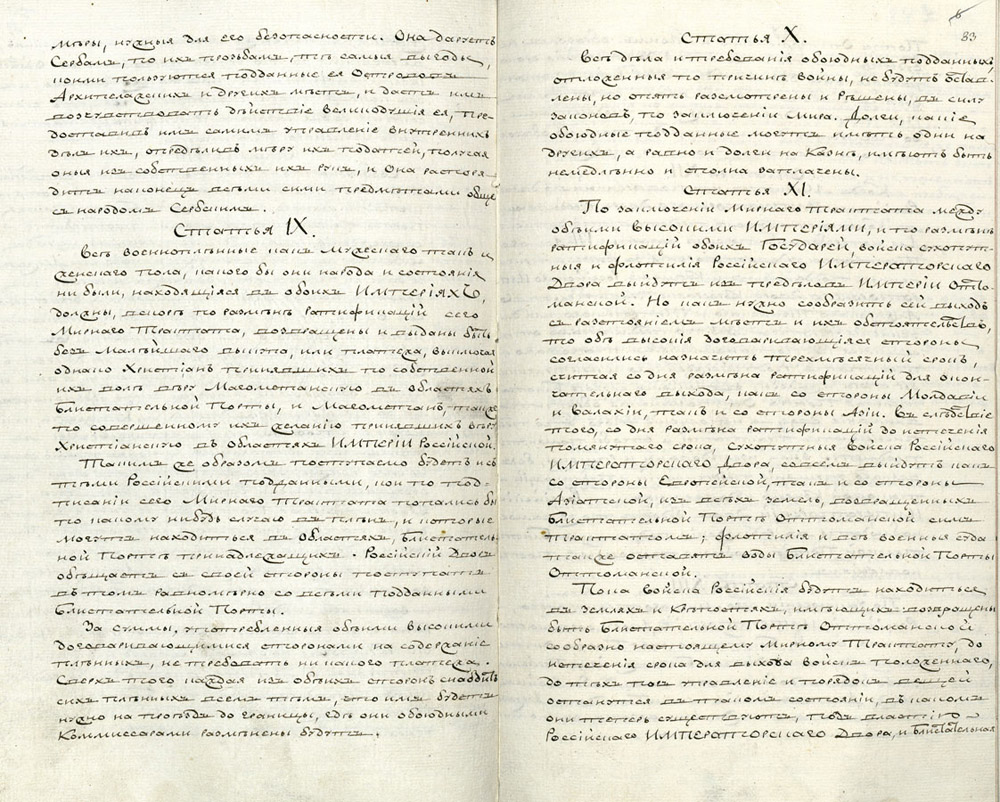 мѣры, нужныя для его безопасности. Она даруетъ
Сербамъ, по ихъ прозьбамъ, тѣ самыя выгоды,
коими пользуются подданные ея Острововъ
Архипелажскихъ и другихъ мѣстъ, и дастъ имъ
возчувствовать дѣйствіе великодушія ея, пре-
доставивъ имъ самимъ управленіе внутреннихъ
дѣлъ ихъ, опредѣливъ мѣру ихъ податей, получая
оныя изъ собственныхъ ихъ рукъ, и Она распоря-
дитъ наконецъ всѣми сими предмѣтами обще
съ народомъ Сербскимъ.
Статья IX.
Всѣ военноплѣнные какъ мужескаго такъ и
женскаго пола, какого бы они народа и состоянія
ни были, находящіяся въ обоихъ ИМПЕРІЯХЪ,
должны, вскорѣ по размѣнѣ ратификацій сего
Мирнаго Трактата, возвращены и выданы быть
безъ малѣйшаго выкупу, или платежа, выключая
однако Христіанъ принявшихъ по собственной
ихъ волѣ вѣру Магометанскую въ областяхъ
Блистательной Порты, и Магометанъ, также
по совершенному ихъ желанію принявшихъ вѣру
Христіанскую въ областяхъ ИМПЕРІИ Россійской.
Такимъ же образомъ поступаемо будетъ и съ
тѣми Россійскими подданными, кои по под-
писаніи сего Мирнаго Трактата попались бы
по какому нибудь случаю въ плѣнъ, и которые
могутъ находиться въ областяхъ, Блистатель-
ной Портѣ принадлежащихъ. Россійскій Дворъ
обѣщаетъ съ своей стороны поступать
въ томъ равномѣрно со всѣми подданными
Блистательной Порты.
За суммы, употребленныя обѣими высокими
договаривающимися сторонами на содержаніе
плѣнныхъ, не требовать ни какого платежа.
Сверхъ того каждая изъ обѣихъ сторонъ снабдитъ
сихъ плѣнныхъ всемъ тѣмъ, что имъ будетъ
нужно на проѣздъ до границы, гдѣ они обоюдными
Коммиссарами размѣнены будутъ.
83
Статья X.
Всѣ дѣла и требованія обоюдныхъ подданныхъ,
отложенныя по причинѣ войны, не будутъ остав-
лены, но опять разсмотрены и рѣшены, въ силу
законовъ, по заключеніи мира. Долги, какіе
обоюдные подданные могутъ имѣть одни на
другихъ, а равно и долги на Казнѣ, имѣютъ быть
немедлѣнно и сполна заплачены.
Статья XI.
По заключеніи Мирнаго Трактата между
обѣими высокими ИМПЕРІЯМИ, и по размѣнѣ
ратификацій обоихъ ГОСУДАРЕЙ, войска сухопут-
ныя и флотилія Россійскаго ИМПЕРАТОРСКАГО
Двора выйдутъ изъ предѣловъ ИМПЕРІИ Отто-
манской. Но какъ нужно сообразить сей выходъ
съ разстояніемъ мѣстъ и ихъ обстоятельствъ,
то обѣ высокія договаривающіяся стороны
согласились назначить трехмѣсячный срокъ,
считая со дня размѣна ратификацій для окон-
чательнаго выхода, какъ со стороны Молдавіи
и Валахіи, такъ и со стороны Азіи. Въ слѣдствіе
того, со дня размѣна ратификацій до истеченія
помянутаго срока, сухопутныя Войска Россійскаго
ИМПЕРАТОРСКАГО Двора, совсѣмъ выйдутъ какъ
со стороны Европейской, такъ и со стороны
Азіатской, изъ всѣхъ земель, возвращенныхъ
Блистательной Портѣ Оттоманской симъ
Трактатомъ; флотилія и всѣ военныя суда
также оставятъ воды Блистательной Порты
Оттоманской.
Пока Войска Россійскія будутъ находиться
въ земляхъ и Крѣпостяхъ, имѣющихъ возвращены
быть Блистательной Портѣ Оттоманской
сообразно настоящему Мирному Трактату, до
истеченія срока для выхода войскъ положеннаго,
до тѣхъ поръ управленіе и порядокъ вещей
останутся въ такомъ состояніи, въ какомъ
они теперь существуютъ, подъ властію
Россійскаго ИМПЕРАТОРСКАГО Двора, и Блистательная